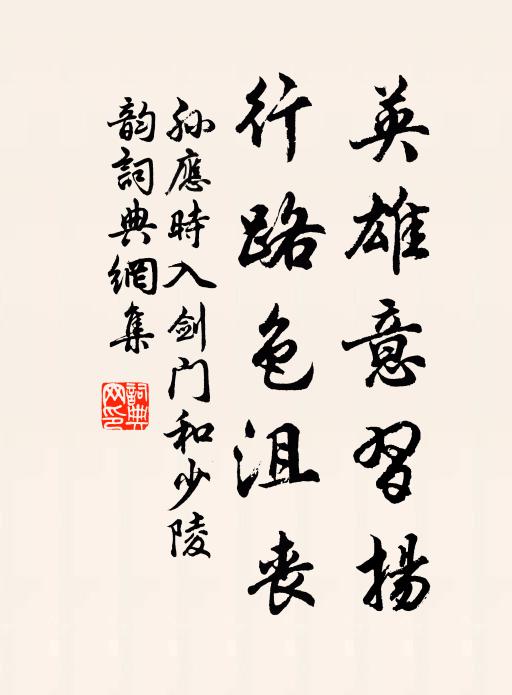 英雄意習揚
行路色沮喪
孫應時入剑门和少陵
韵詞典網集
詞典網印